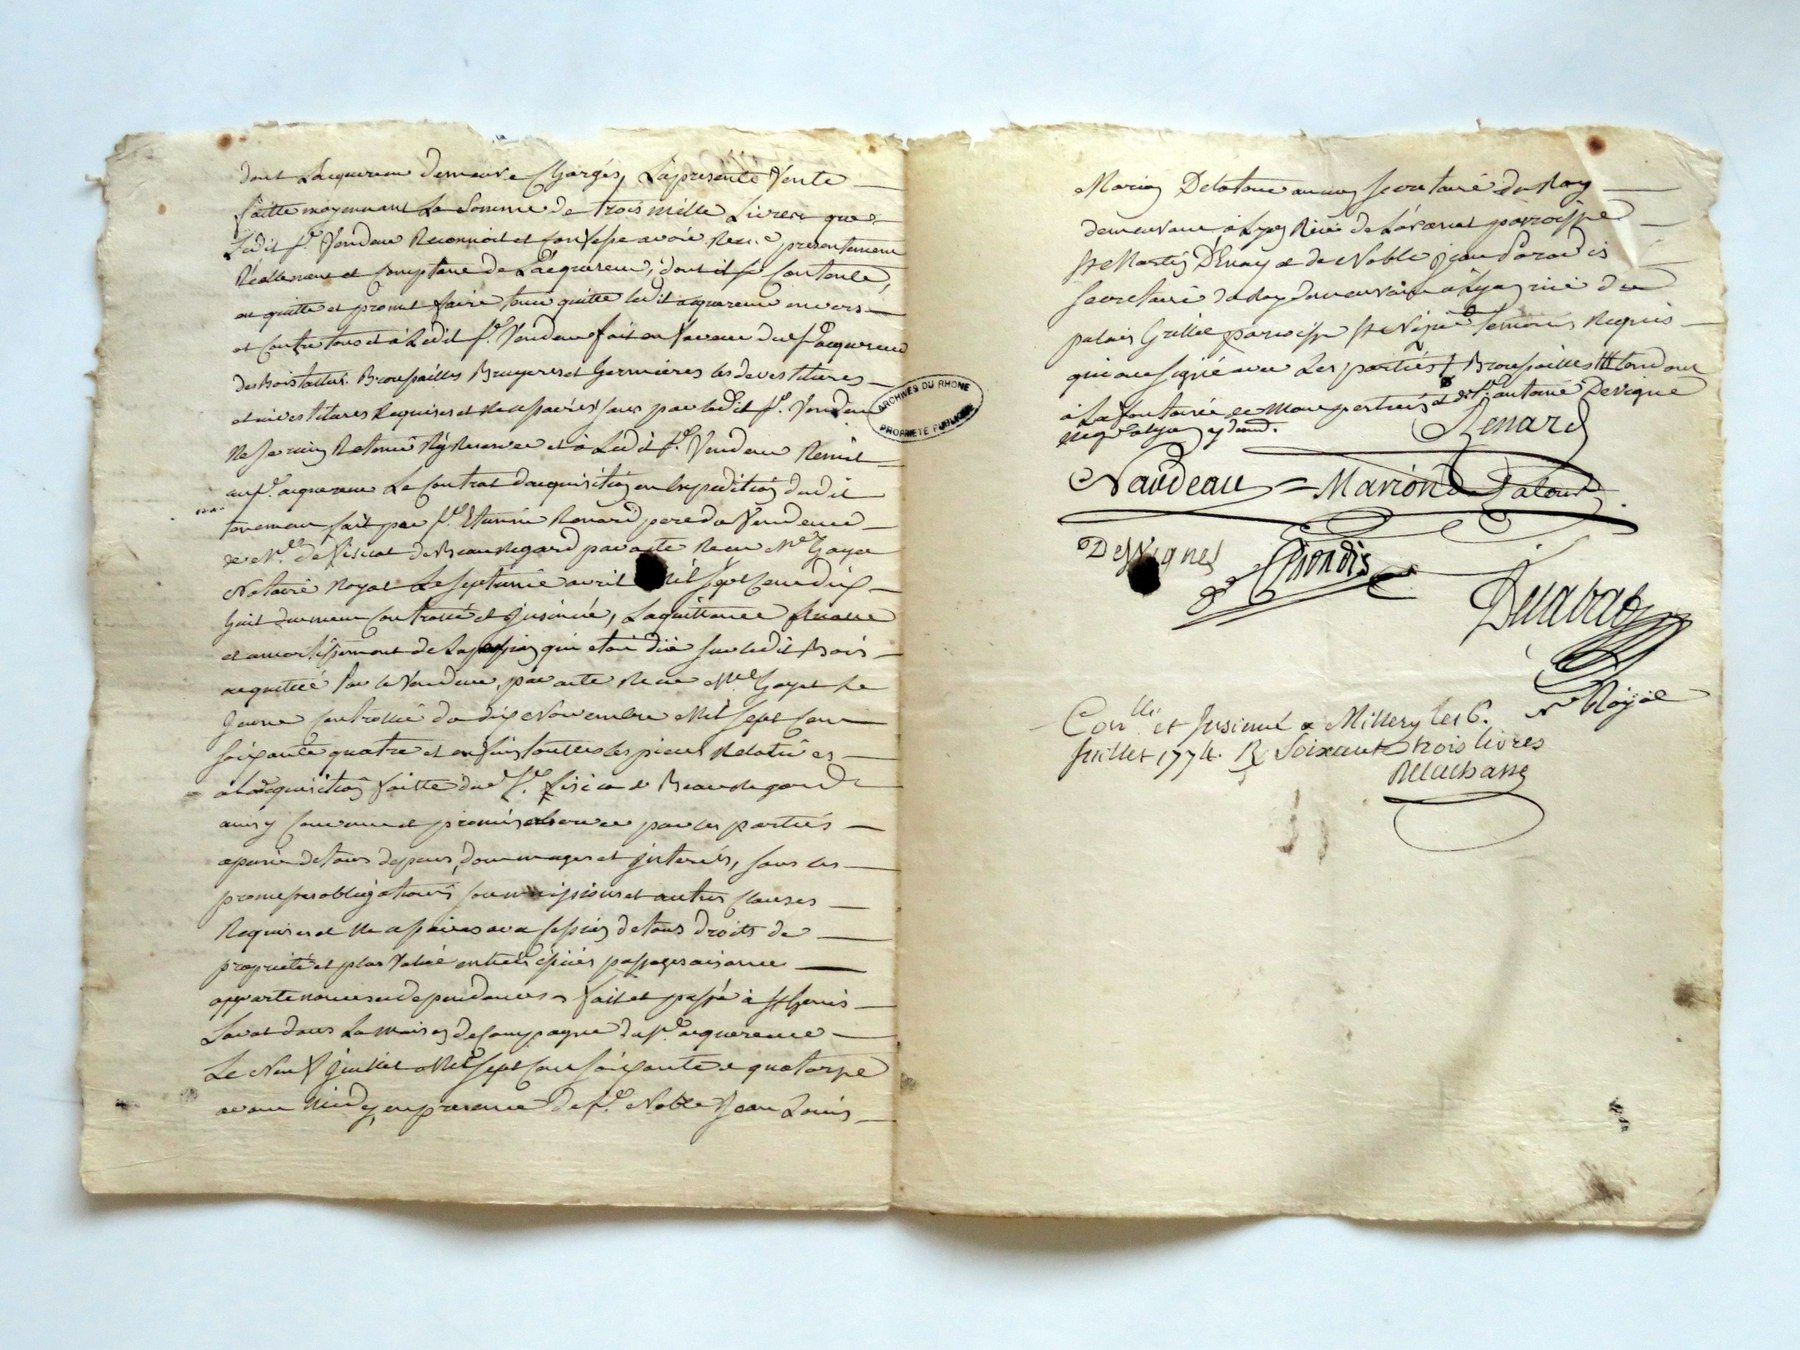 dont Lacquereur demeure Chargés, La presente Vente
faitte moyennant La Somme de trois mille Livres que
Ledit Sr. Vendeur Reconnoit et confesse avoir Receu presentement
Réellement et Comptant de L'acquereur, dont il se Contente,
en quitte et promet faire tenir quitte ledit acquereur envers
et contre tous et a Ledit Sr. Vendeur fait en faveur du Sr. acquereur
des Bois taillis Broussailles Bruyeres et les devestitures
et investitures Requises et Necessaires sans par ledit Sr. Vendeur
Ne se rien Retenir Ny Reserver et a Ledit Sr. Vendeur Remit
au Sr. acquereur Le Contrat d'acquisition en Expedition dudit
tenement fait par Sr. Etienne Renard pere du Vendeur
de Beauregard par acte Receu Me. Gayet
Notaire Royal Le septieme avril Mil sept cent dix
huit duement Controllé et Insinué, La quittance finalle
et amortissement de La pension qui etoit düe sur ledit Bois
acquitté Par le Vendeur, par acte Receu Me. Gayet Le
Jeune Controllé du dix Novembre Mil sept cent
soixante quatre et enfin touttes les pieces Relatives
a L'acquisition faitte du Sr. de Beauregard
ainsy Convenu et promis observer par les parties
a peine de tous depens, dommages et interets, sous les
promesses obligations soumissions et autres Clauses
Requises et Necessaires avec cession de tous droits de
propriété et plus Value entrées issües passages aisances
appartenances et dependances. fait et passé à St Genis
Laval dans La maison de Campagne du Sr. acquereur
Le Neuf Juillet Mil sept cent soixante et quatorze
avant Midy en presence de Sr. Noble Jean Louis
ARCHIVES DU RHONE
PROPRIÉTÉ PUBLIQUE
Marion Delatour ancien secretaire du Roy
demeurant à Lyon Ruë de L'arcenal paroisse
St Martin D'Enay et de Noble Jean
secretaire du Roy demeurant à Lyon ruë du
palais Grillet paroisse St Nizier temoins Requis
qui ont signé avec Les parties Broussailles
à La fontaine et Sr. antoine Devigne
Renard
Naudeau = Marion Delatour
Desvignes
Dutabat
Nre Royal
Conlle. et Insinué a Millery le 16.
Juillet 1774. R Soixante trois livres
Delachassg